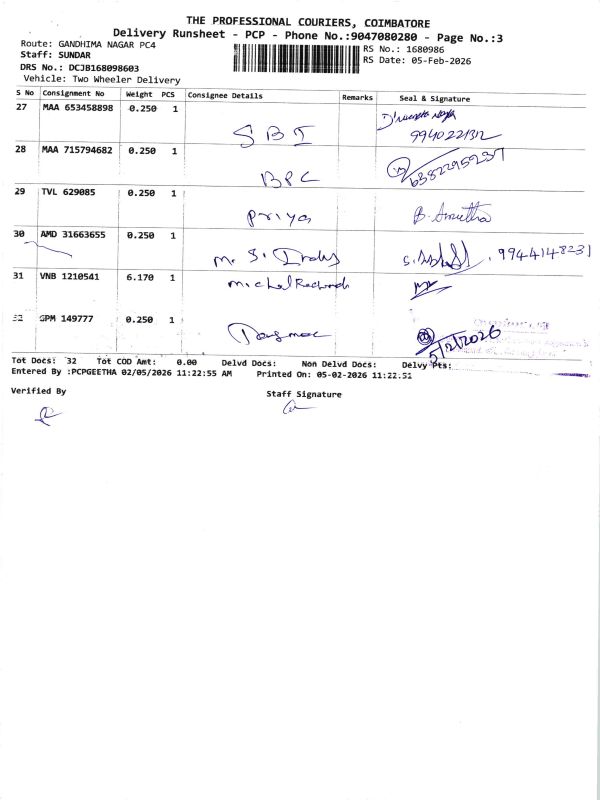 THE PROFESSIONAL COURIERS, COIMBATORE
Delivery Runsheet - PCP - Phone No.:9047080280 - Page No.:3
Route: GANDHIMA NAGAR PC4
RS No.: 1680986
Staff: SUNDAR
RS Date: 05-Feb-2026
DRS No.: DCJB168098603
Vehicle: Two Wheeler Delivery
S No Consignment No Weight PCS Consignee Details Remarks Seal & Signature
27 MAA 653458898 0.250 1
SBI 9940221312
28 MAA 715794682 0.250 1
BPC 6382295237
29 TVL 629085 0.250 1
Priya B. Amutha
30 AMD 31663655 0.250 1
M. S. 9944148231
31 VNB 1210541 6.170 1
Michel
32 GPM 149777 0.250 1
Tasmac 5/2/2026
Tot Docs: 32 Tot COD Amt: 0.00 Delvd Docs: Non Delvd Docs: Delvy Pts:
Entered By :PCPGEETHA 02/05/2026 11:22:55 AM Printed On: 05-02-2026 11:22:51
Verified By
Staff Signature